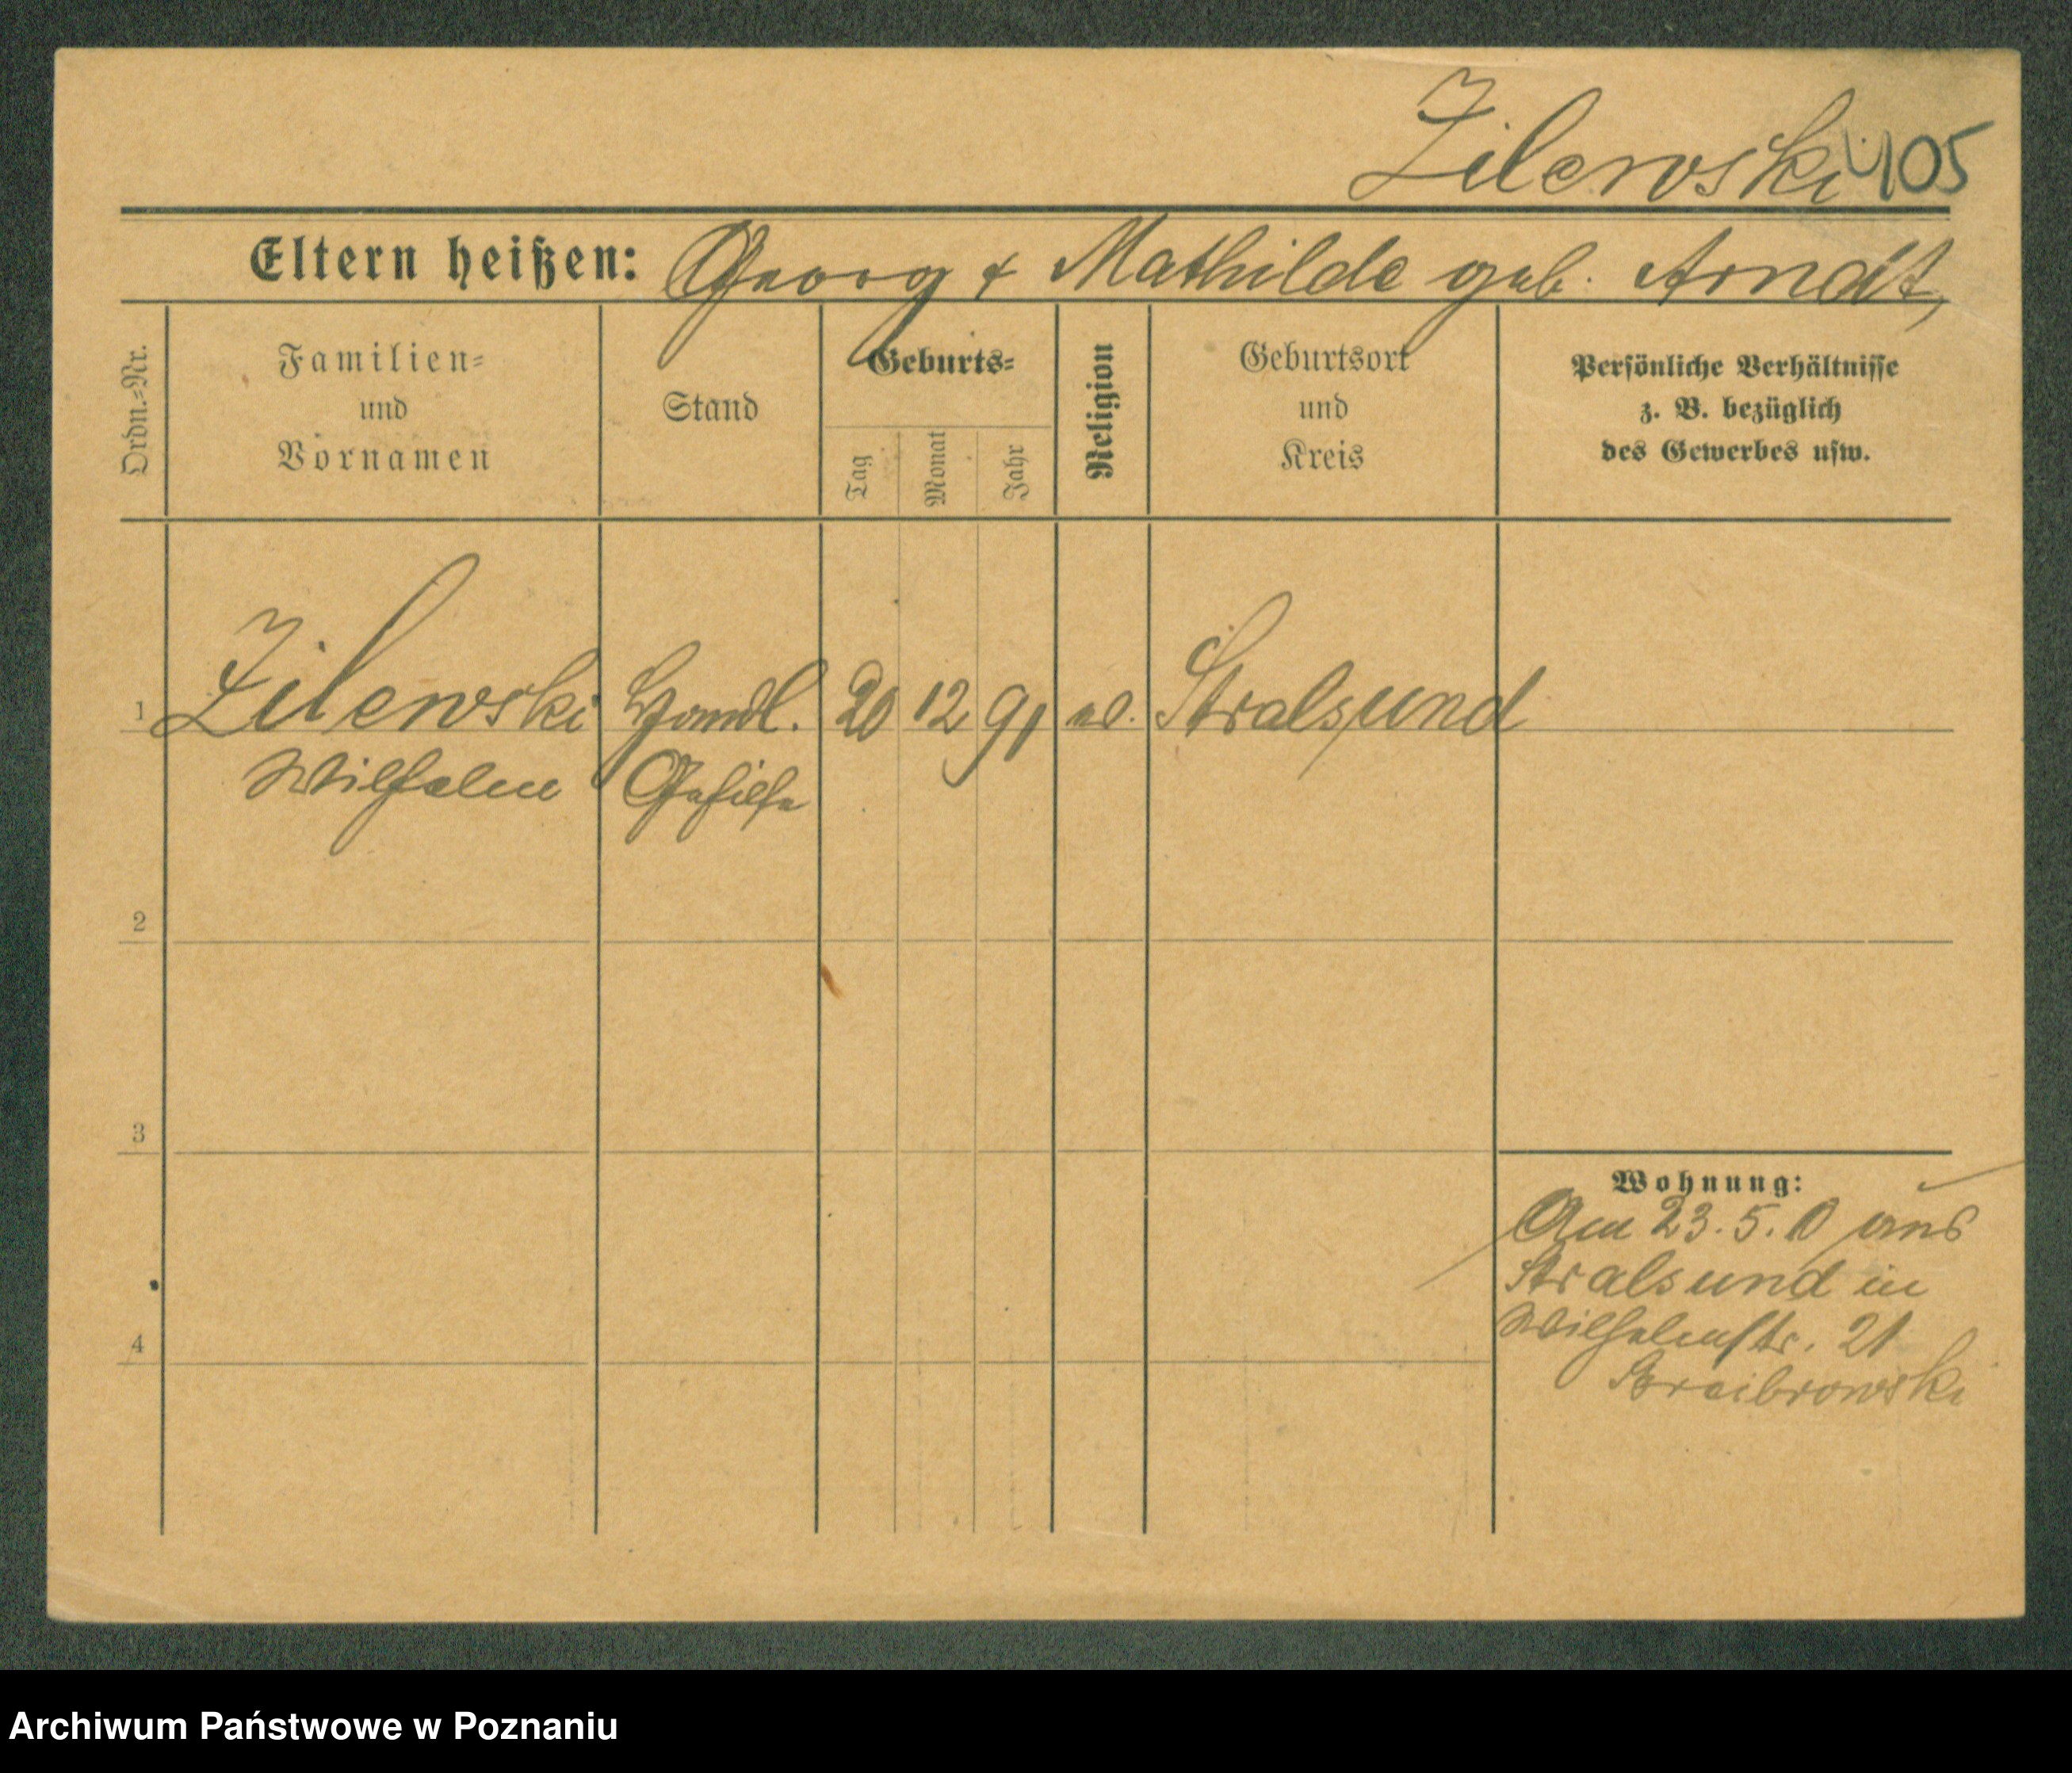 Zilewski 405
Eltern heißen: Georg & Mathilde geb. Arndt,
Ordn.=Nr.
Familien=
und
Vornamen
Stand
Geburts=
Tag
Monat
Jahr
Religion
Geburtsort
und
Kreis
Persönliche Verhältnisse
z. B. bezüglich
des Gewerbes usw.
1 Zilewski Handl. 20 12 91 ev. Stralsund
Wilhelm Gehilfe
2
3
Wohnung:
Am 23.5.10 aus
Stralsund in
Wilhelmstr. 21
4
Archiwum Państwowe w Poznaniu